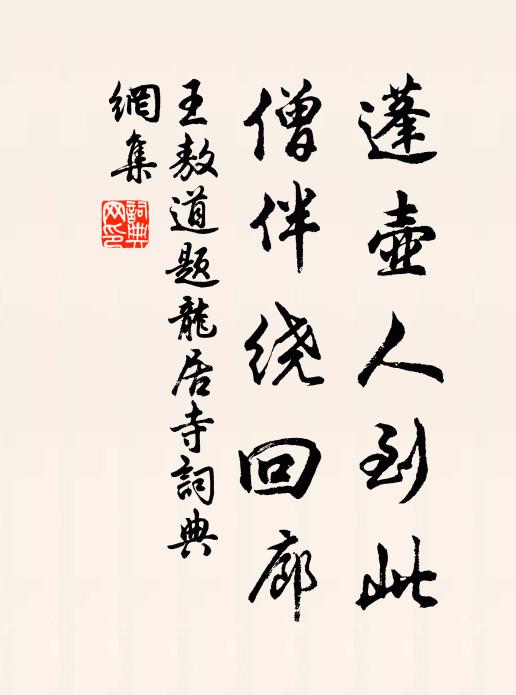 蓬壺人到此
僧伴绕回廊
王敖道題龍居寺詞典
網集
詞典
网印